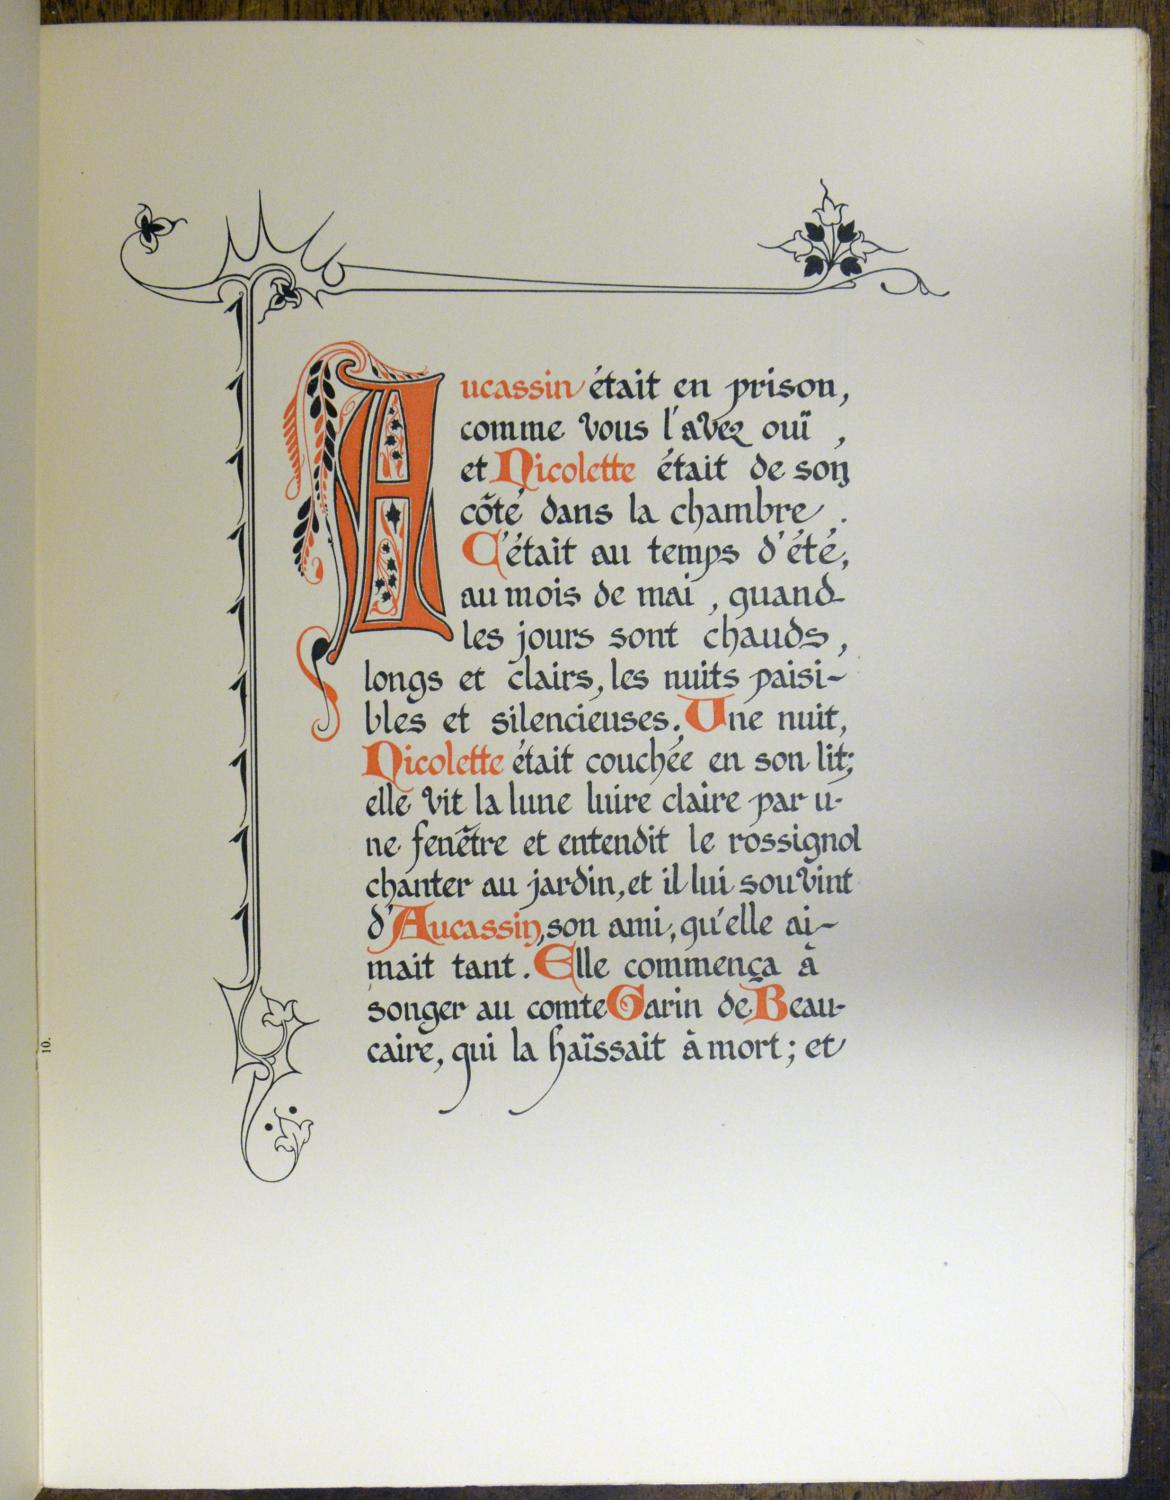 Aucassin était en prison,
comme vous l'avez ouï ,
et Nicolette était de son
côté dans la chambre .
C'était au temps d'été,
au mois de mai , quand
les jours sont chauds ,
longs et clairs, les nuits paisi-
bles et silencieuses. Une nuit,
Nicolette était couchée en son lit;
elle vit la lune luire claire par u-
ne fenêtre et entendit le rossignol
chanter au jardin, et il lui souvint
d'Aucassin, son ami, qu'elle ai-
mait tant. Elle commença à
songer au comte Garin de Beau-
caire, qui la haïssait à mort; et
10.